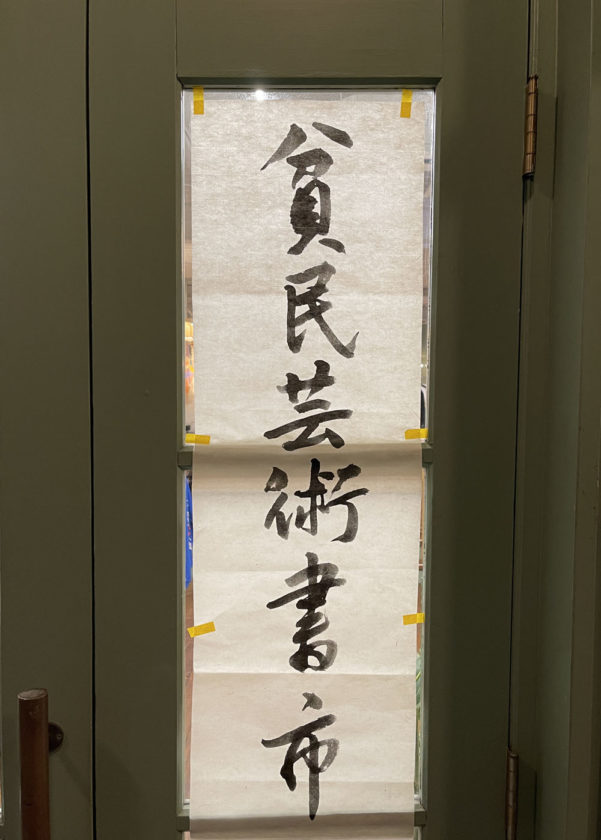 貧民芸術書市